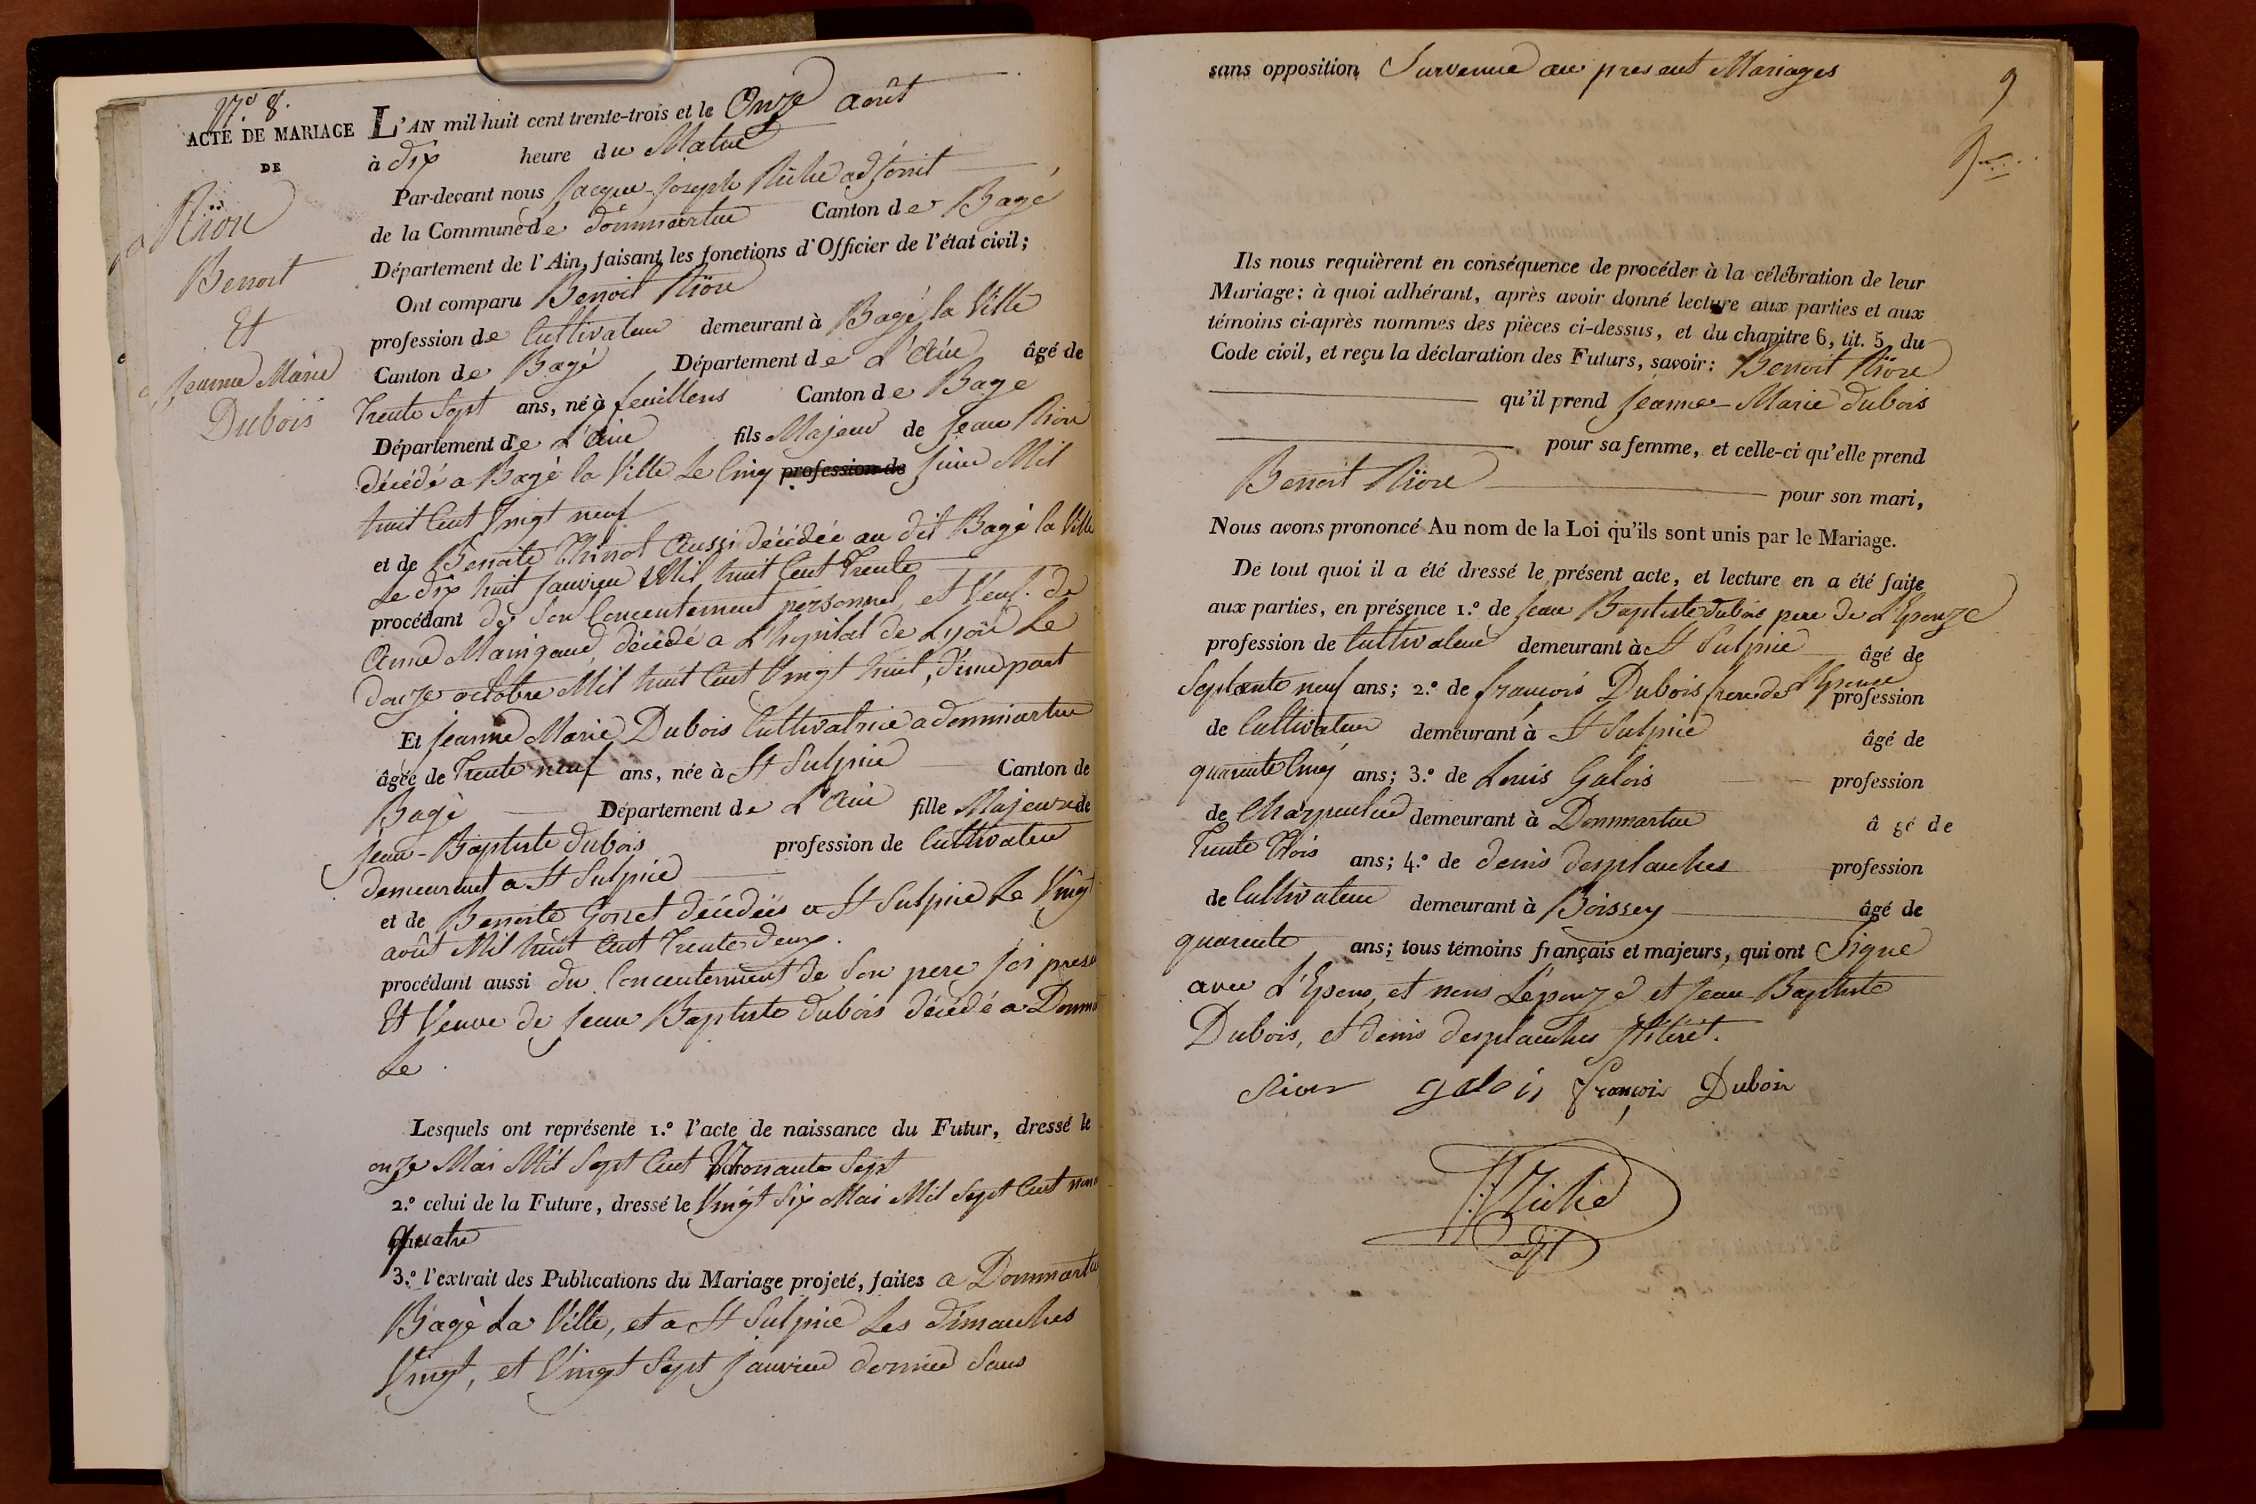 N.º 8.
ACTE DE MARIAGE
DE
Niöu
Benoit
Et
Jeanne Marie
Dubois
L'AN mil huit cent trente-trois et le Onze août
à dix heure du Matin
Par-devant nous Jacque-Joseph adjoint
de la Commune de dommartin Canton de Bagé
Département de l'Ain, faisant les fonctions d'Officier de l'état civil;
Ont comparu Benoit
profession de Cultivateur demeurant à Bagé la Ville
Canton de Bagé Département de L'Ain âgé de
Trente Sept ans, né à feuillens Canton de Bagé
Département de L'Ain fils Majeur de Jean
décédé a Bagé la Ville Le Cinq profession de Juin Mil
huit Cent Vingt neuf
et de Benoite Aussi décédée au dit Bagé la Ville
Le dix huit Janvier Mil huit Cent Trente
procédant de Son Concentement personnel, et Veuf de
Anne décédé a L'hopital de Lyon Le
douze octobre Mil huit Cent Vingt huit, d'une part
Et Jeanne Marie Dubois Cultivatrice a dommartin
âgée de Trente neuf ans, née à St Sulpice Canton de
Bagé Département de L'Ain fille Majeure de
Jean-Baptiste dubois profession de Cultivateur
demeurant a St Sulpice
et de Benoite Gonet décédée a St Sulpice Le Vingt
août Mil huit Cent Trente deux.
procédant aussi du Concentement de Son pere
Et Veuve de Jean Baptiste dubois décédé a
Le
Lesquels ont représenté 1.º l'acte de naissance du Futur, dressé le
onze Mai Mil Sept Cent Nonante Sept
2.º celui de la Future, dressé le Vingt Six Mai Mil Sept Cent
quatre
3.º l'extrait des Publications du Mariage projeté, faites a Dommartin
Bagé La Ville, et a St Sulpice Les dimanches
Vingt, et Vingt Sept Janvier dernier Sans
sans opposition Survenue au present Mariages
9
Ils nous requièrent en conséquence de procéder à la célébration de leur
Mariage: à quoi adhérant, après avoir donné lecture aux parties et aux
témoins ci-après nommés des pièces ci-dessus, et du chapitre 6, tit. 5, du
Code civil, et reçu la déclaration des Futurs, savoir: Benoit
qu'il prend Jeanne-Marie dubois
pour sa femme, et celle-ci qu'elle prend
Benoit pour son mari,
Nous avons prononcé Au nom de la Loi qu'ils sont unis par le Mariage.
De tout quoi il a été dressé le présent acte, et lecture en a été faite
aux parties, en présence 1.º de Jean Baptiste dubois pere de L'Epouze
profession de Cultivateur demeurant à St Sulpice âgé de
Septante neuf ans; 2.º de françois Dubois frere de L'Epouse profession
de Cultivateur demeurant à St Sulpice âgé de
quarente Cinq ans; 3.º de Louis Galois profession
de Charpentier demeurant à Dommartin âgé de
Trente Trois ans; 4.º de denis desplanches profession
de Cultivateur demeurant à Boissey âgé de
quarente ans; tous témoins français et majeurs, qui ont Signé
avec L'Epoux, et nous L'epouze et Jean Baptiste
Dubois, et denis desplanches
galois françois Dubois
adjt